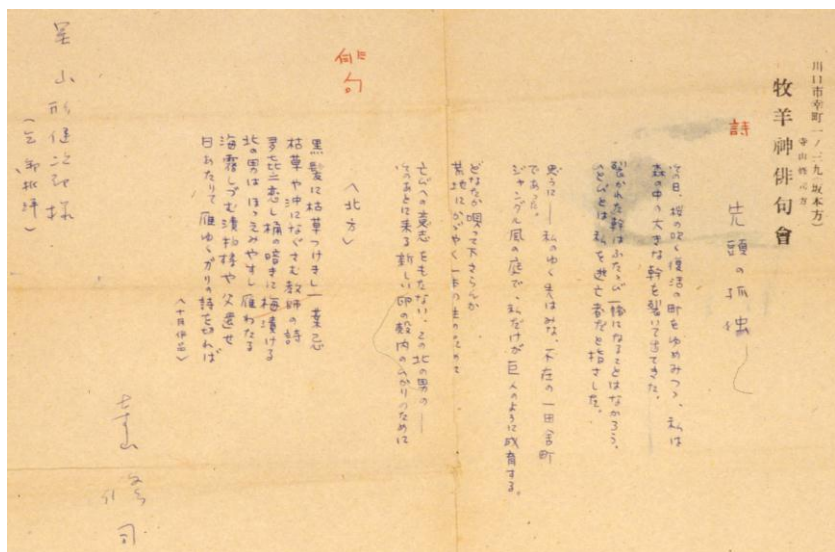 川口市幸町一ノ二九(坂本方)
寺山修司方
牧羊神俳句會
詩
先頭の孤独
その日、桜の吹く復活の町をゆめみつゝ、私は
森の中の大きな幹を裂いて出てきた。
裂かれた幹はふたゝび一緒になることはなかろう。
人びとは私を逃亡者だと指さした。
思うに——私のゆく先はみな、不在の一田舎町
であった。
ジャングル風の庭で、私だけが巨人のように成育する。
どなたか唄って下さらんか
荒地にかゞやく一本の生のために
亡びへの意志をもたない、この北の男の——
そのあとに来る新しい卵の殻内のひかりのために
俳句
〈北方〉
黒髪に枯草つけまし一葉忌
枯草や沖になぐさむ教師の詩
多喜二恋し桶の暗きに梅漬ける
北の男はほゝえみやすし雁わたる
海霧しづむ漬物樽や父還せ
日あたりて雁ゆく
の詩を
れば
〈十月作品〉
山形健次郎様
寺山修司